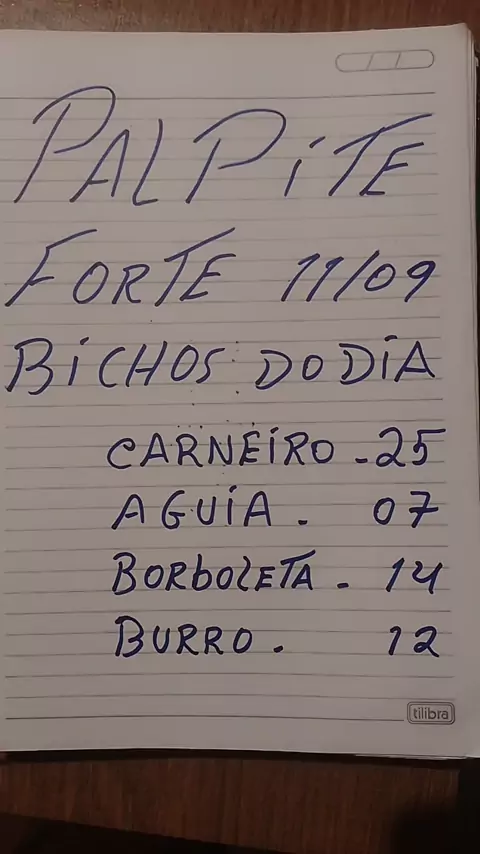 PALPITE
FORTE 11/09
BICHOS: DO DIA
CARNEIRO - 25
AGUIA. 07
BORBOLETA - 14
BURRO. 12
tilibra